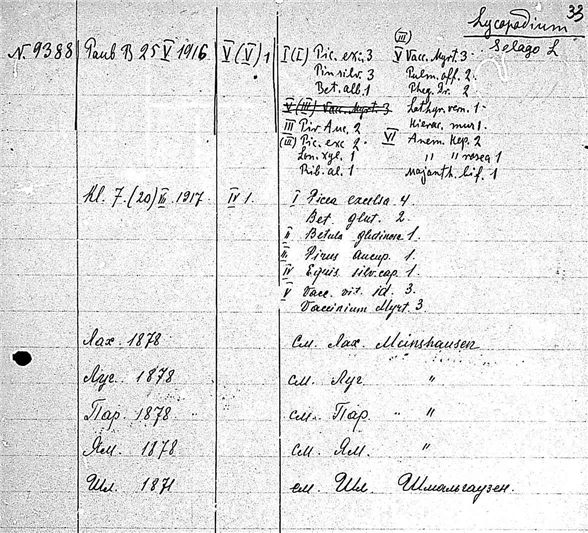 33
Lycopodium
Selago L
N. 9388 Raub B 25 V 1916 V (V) 1 I (I) Pic. exc. 3 V (III) Vacc. Myrt. 3
Pin silv. 3 Pulm. off. 2
Bet. alb. 1 Pheg. Dr. 2
V (III) Vacc. Myrt. 3 Lathyr. vern. 1
III Pir Auc. 2 Hierac. mur 1.
(III) Pic. exc 2 VI Anem. Hep. 2
Lon. xyl. 1 " " rosea 1
Rib. al. 1 Majanth. bif. 1
Kl. 7. (20) III. 1917 IV 1. I Picea excelsa. 4.
Bet. glut. 2.
II Betula glutinosa 1.
II. Pirus aucup. 1.
IV Equis silv. cap. 1
V Vacc. vit. id. 3.
Vaccinium Myrt. 3.
Лах. 1878 см. Лах. Meinshausen
Луг. 1878 см. Луг "
Пар. 1878 см. Пар. " "
Ям. 1878 см. Ям. "
Шл. 1871 см. Шл. Шмальгаузен.